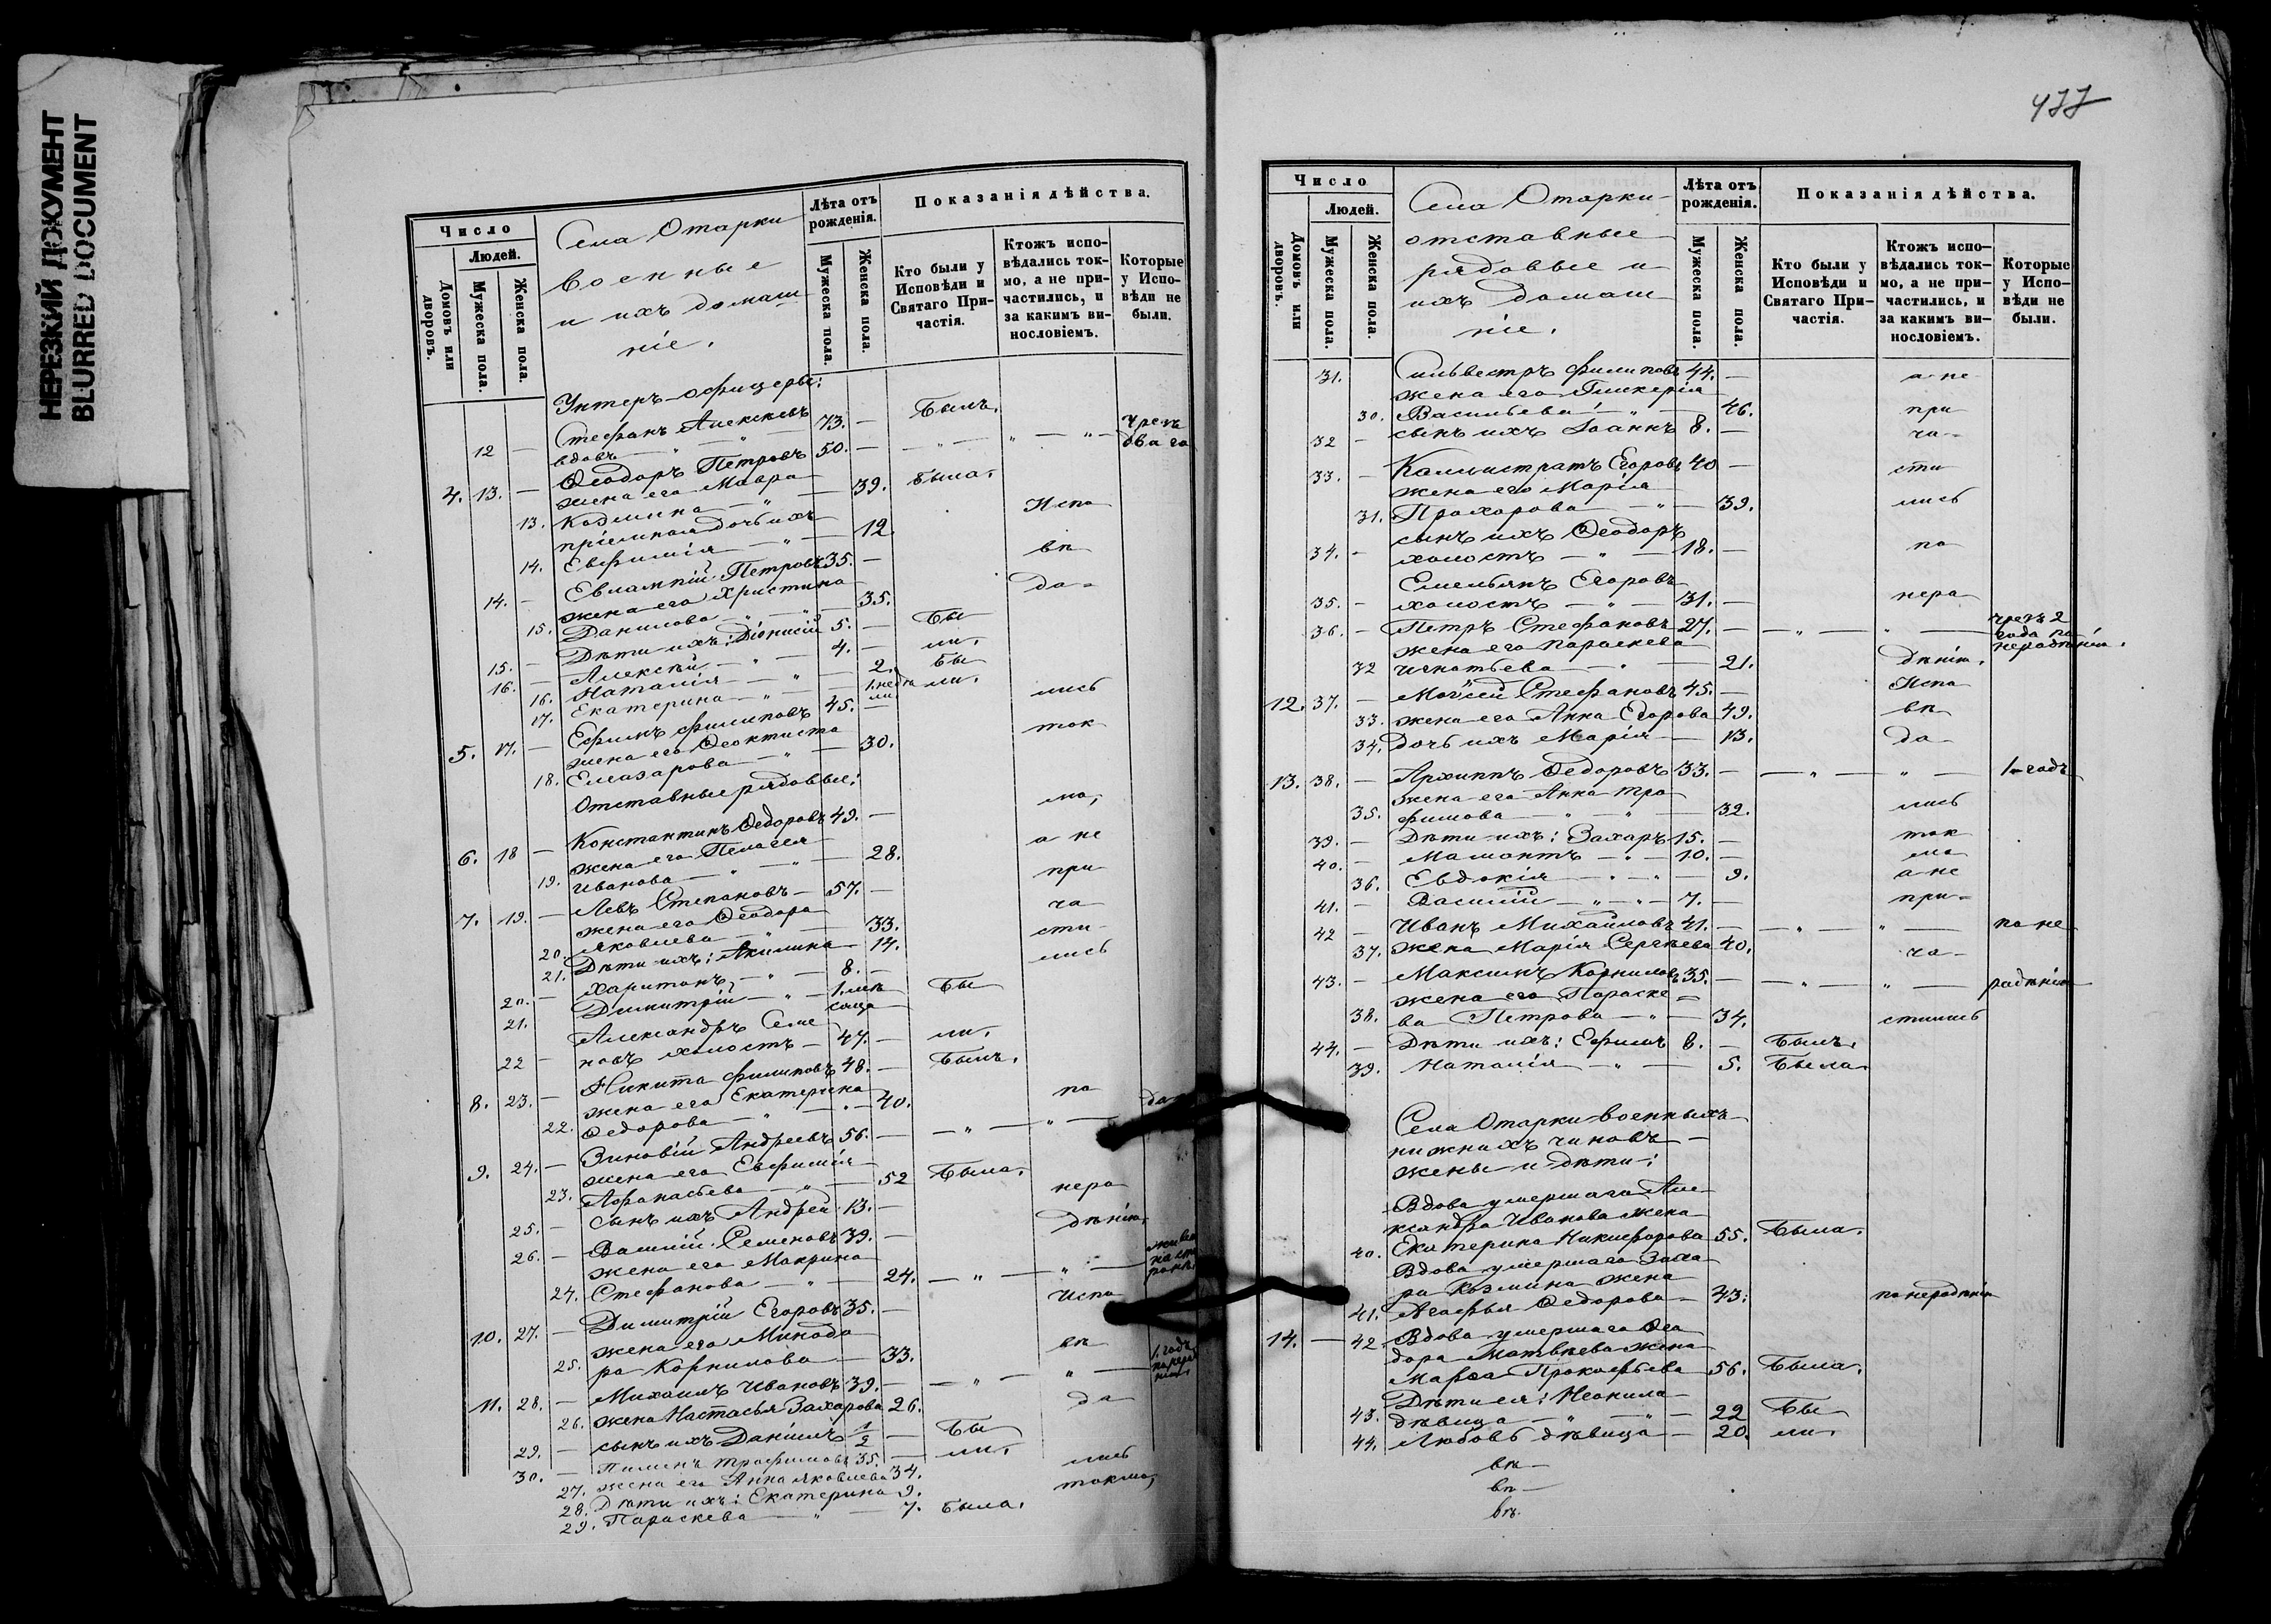 НЕРЕЗКИЙ ДОКУМЕНТ
BLURRED DOCUMENT
Число
Людей.
Домовъ или дворовъ.
Мужеска пола.
Женска пола.
Села Отарки
военные
и ихъ домаш
ніе.
Лѣта отъ рожденія.
Мужеска пола.
Женска пола.
Показанія дѣйства.
Кто были у Исповѣди и Святаго При-частія.
Ктожъ испо-вѣдались ток-мо, а не при-частились, и за какимъ ви-нословіемъ.
Которые у Испо-вѣди не были.
Унтеръ-офицеры:
Стефанъ Алексѣевъ
12 — вдовъ — " — 73. — Былъ.
чрезъ
4. 13. — Ѳеодоръ Петровъ 50. — " — " — " — два го
жена его Мавра
13. Козмина — " — 39. Была.
пріемная дочь ихъ
14. Евфимія — " — 12. Испо
14. — Евлампій Петровъ 35. — вѣ
жена его Христина
15. Данилова — " — 35. да-
15. — Дѣти ихъ: Діонисій 5. — Бы
16. — Алексѣй — " — 4. — ли.
16. Наталія — " — 2. Бы
17. Екатерина — " — 1. недѣ ли ли.
5. 17. — Ефимъ Филиповъ 45. — лись
жена его Ѳеоктиста
18. Елеазарова — " — 30. ток
Отставные рядовые:
6. 18 — Константинъ Ѳедоровъ 49. — мо,
жена его Пелагея
19. Иванова — " — 28. а не
7. 19. — Левъ Степановъ — 57. — при
жена его Ѳеодора
20. Яковлева — " — 33. ча
21. Дѣти ихъ: Акилина — 14. сти-
20. — Харитонъ — " — 8. — лись
21. Димитрій — " — 1. мѣ сяца Бы
Александръ Семе
22 — новъ холостъ — 47. — ли.
8. 23. — Никита Филиповъ 48. — Былъ.
жена его Екатерина
22. Ѳедорова — " — 40. по
9. 24. — Зиновій Андреевъ 56. — " — " — да
жена его Евфимія
23. Афанасьева — " — 52 Была.
25. — Сынъ ихъ Андрей 13. — нера
26. — Василій Семеновъ 39. — дѣнію.
жена его Макрина
24. Стефанова — " — 24. — " — " —
10. 27. — Димитрій Егоровъ 35. — Испо
жена его Минодо
25. ра Корнилова — 33. вѣ
11. 28. — Михаилъ Ивановъ 39. — " — " — 1. годъ
26. жена Настасья Захарова 26. да
29. — сынъ ихъ Даніилъ 1/2 — Бы
30. — Пименъ Трофимовъ 35. — ли.
27. жена его Анна Яковлева 34. лись
28. Дѣти ихъ: Екатерина 9. токмо,
29. Параскева — " — 7. Была.
477
Число
Людей.
Домовъ или дворовъ.
Мужеска пола.
Женска пола.
Села Отарки
отставные
рядовые и
ихъ домаш
ніе.
Лѣта отъ рожденія.
Мужеска пола.
Женска пола.
Показанія дѣйства.
Кто были у Исповѣди и Святаго При-частія.
Ктожъ испо-вѣдались ток-мо, а не при-частились, и за какимъ ви-нословіемъ.
Которые у Испо-вѣди не были.
31. Сильвестръ Филиповъ 44. — а не
жена его Гликерія
30. Васильева — " — 46. при
32 — сынъ ихъ Іоаннъ 8. — ча-
33. — Каллистратъ Егоровъ 40 — сти
жена его Марія
31. Прохорова — " — 39. лись
сынъ ихъ Ѳеодоръ
34. — холостъ — " — 18. — по
Емельянъ Егоровъ
35. — холостъ — " — 31. — нера
36. — Петръ Стефановъ 27. — " — " — чрезъ 2 года по нерадѣнію.
жена его Параскева
32 Игнатьева — " — 21. дѣнію.
12. 37. — Моисей Стефановъ 45. — Испо
33. жена его Анна Егорова 49. вѣ
34. дочь ихъ Марія — 13. да-
13. 38. — Архиппъ Ѳедоровъ 33. — " — " — 1 годъ
жена его Анна Тро
35. фимова — " — 32. лись
39. — Дѣти ихъ: Захаръ 15. — ток
40. — Мамонтъ — " — 10. — мо
36. Евдокія — " — 9. а не
41. — Василій — " — 7. — при-
42 — Иванъ Михайловъ 41. — " — " — по не
37. жена Марія Сергѣева 40. ча-
43. — Максимъ Корниловъ 35. — " — " — радѣнію
жена его Параске
38. ва Петрова — " — 34. стились
44. — Дѣти ихъ: Ефимъ 8. — Былъ.
39. Наталія — " — 5. Была.
Села Отарки военныхъ
нижнихъ чиновъ
жены и дѣти:
Вдова умершаго Але
ксандра Иванова жена
40. Екатерина Никифорова 55. Была.
Вдова умершаго Заха
ра Козмина жена
41. Агафья Ѳедорова — 43. по нерадѣнію
14. — 42. Вдова умершаго Ѳео
дора Матвѣева жена
Марѳа Прокофьева 56. Была.
Дѣти ея: Неонила
43. дѣвица — " — 22 Бы
44. Любовь дѣвица — 20. ли.